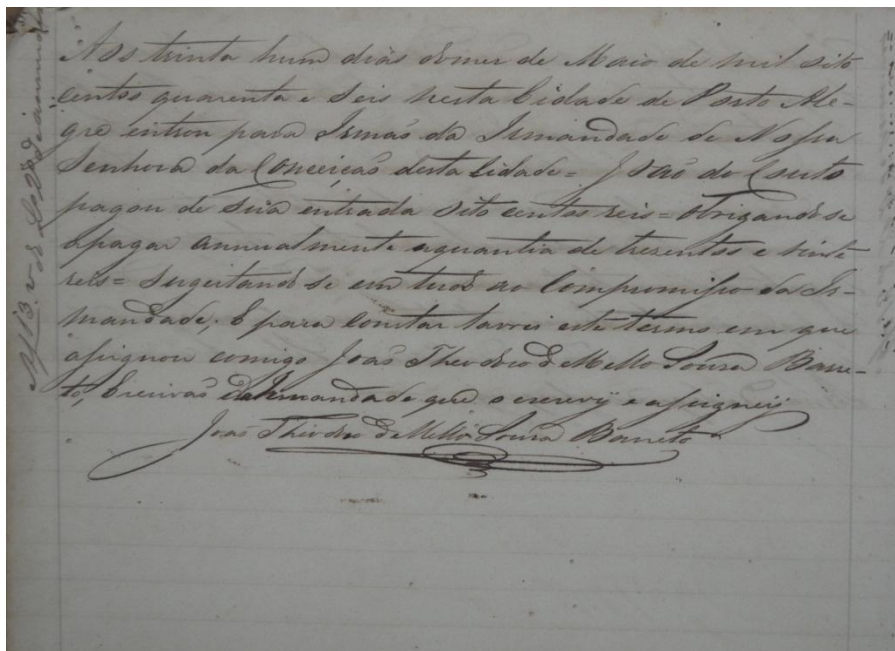 Aos trinta hum dias do mez de Maio de mil oito
centos quarenta e seis nesta Cidade de Porto Ale-
gre entrou para Irmaõ da Irmandade de Nossa
Senhora da Conceiçaõ desta Cidade = João do Couto
pagou de sua entrada oito centos reis = obrigando se
apagar annualmente aquantia de trezentos e vinte
reis = sugeitando se em tudo ao Compromisso da Ir-
mandade, E para constar lavrei este termo em que
assignou comigo Joaõ Theodoro de Mello Souza Barre-
to, Escrivaõ da Irmandade que o escrevy e assigney
Joaõ Theodoro de Mello Souza Barreto